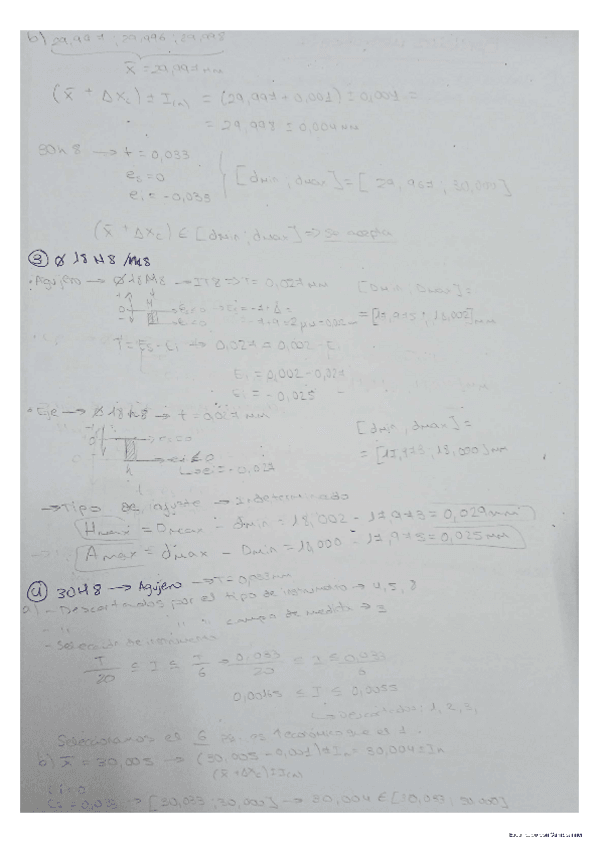 b) 29,997 ; 29,996 ; 29,998
x̄ = 29,997 mm
(x̄ + Δxc) ± I(n) = (29,997 + 0,001) ± 0,001 =
= 29,998 ± 0,004 mm
30h8 → t = 0,033
es = 0
ei = -0,033
[dmin ; dmax] = [29,967 ; 30,000]
(x̄ + Δxc) ∈ [dmin ; dmax] ⇒ Se acepta
③ Ø 18 M8/h8
· Agujero → Ø18M8 → IT8 ⇒ T = 0,027 mm
[Dmin, Dmax] =
= [17,975 ; 18,002] mm
T = Es - Ei → 0,027 = 0,002 - Ei
Ei = 0,002 - 0,027
Ei = -0,025
· Eje → Ø18h8 → t = 0,027 mm
[dmin, dmax] =
= [17,973 ; 18,000] mm
es = 0
ei < 0
ei = -0,027
h
→ Tipo de ajuste → Indeterminado
Hmax = Dmax - dmin = 18,002 - 17,973 = 0,029 mm
Amax = dmax - Dmin = 18,000 - 17,975 = 0,025 mm
30H8 → Agujero → T = 0,033 mm
a) - Descartados por el tipo de instrumento → 4, 5,
- " " " campo de medida → 
- Selección de instrumento
T/20 ≤ I ≤ T/6 → 0,033/20 ≤ I ≤ 0,033/6
0,00165 ≤ I ≤ 0,0055
1, 2, 3,
Seleccionamos el 6
b) x̄ = 30,005 → (30,005 - 0,001) ± In = 30,004 ± In
Ei = 0
Es = 0,033 → [30,033 ; 30,000] → 30,004 ∈ [30,033 ; 30,000]